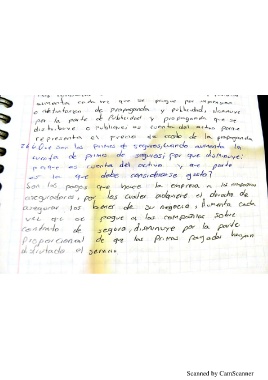 aumenta cada vez que se pague por
o distribución de propaganda y publicidad, disminuye
por la parte de publicidad y propaganda que se
distribuye o publique, es cuenta del activo porque
representa el precio o costo de la propaganda
26. Qué son las primas de seguros, cuando aumenta la
cuenta de prima de seguros, por que disminuye,
porque es cuenta del activo, y que parte
es la que debe considerarse gasto?
Son los pagos que hace la empresa a las compañias
aseguradoras, por los cuales adquiere el derecho de
asegurar los bienes de su negocio, Aumenta cada
vez que se pague a las compañias sobre
contrato de seguro, disminuye por la parte
proporcional de que las primas pagadas hayan
disfrutado el servicio
Scanned by CamScanner